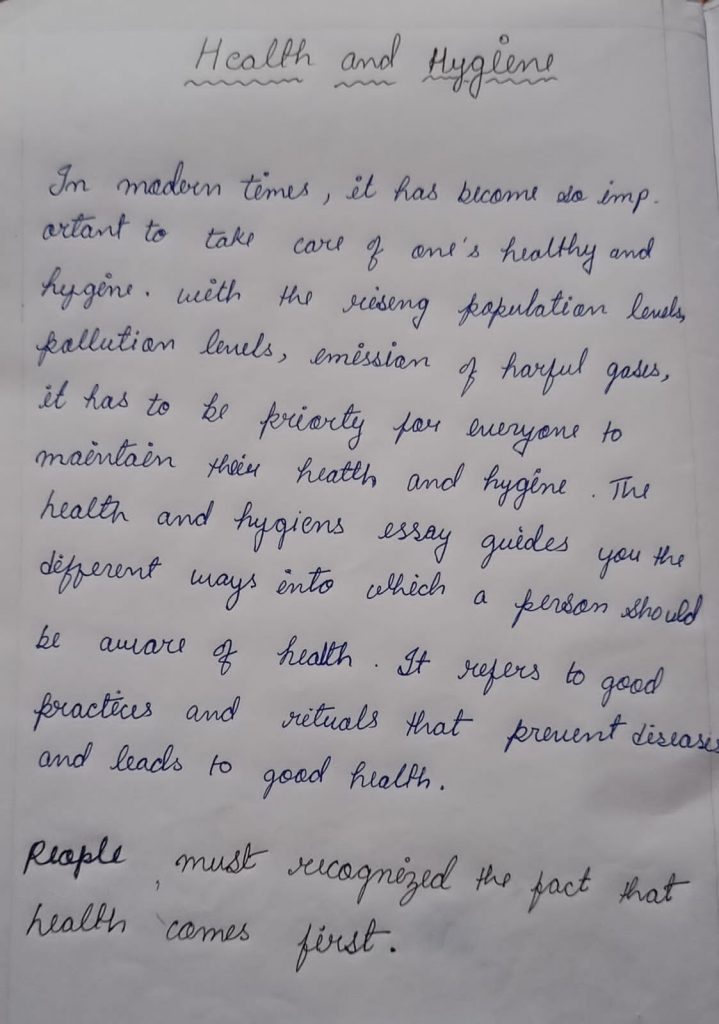 Health and Hygiene
In modern times, it has become so imp.
ortant to take care of one's healthy and
hygine. with the riseng population levels,
pollution levels, emission of harful gases,
it has to be priorty for everyone to
maintain their health and hygine. The
health and hygiens essay guides you the
different ways into which a person should
be aware of health. It refers to good
practices and rituals that prevent diseases
and leads to good health.
People, must recognized the fact that
health comes first.